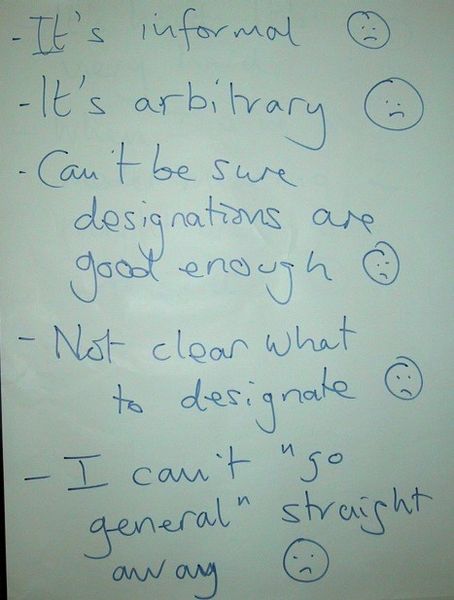 - It's informal
- It's arbitrary
- Can't be sure
designations are
good enough
- Not clear what
to designate
- I can't "go
general" straight
away